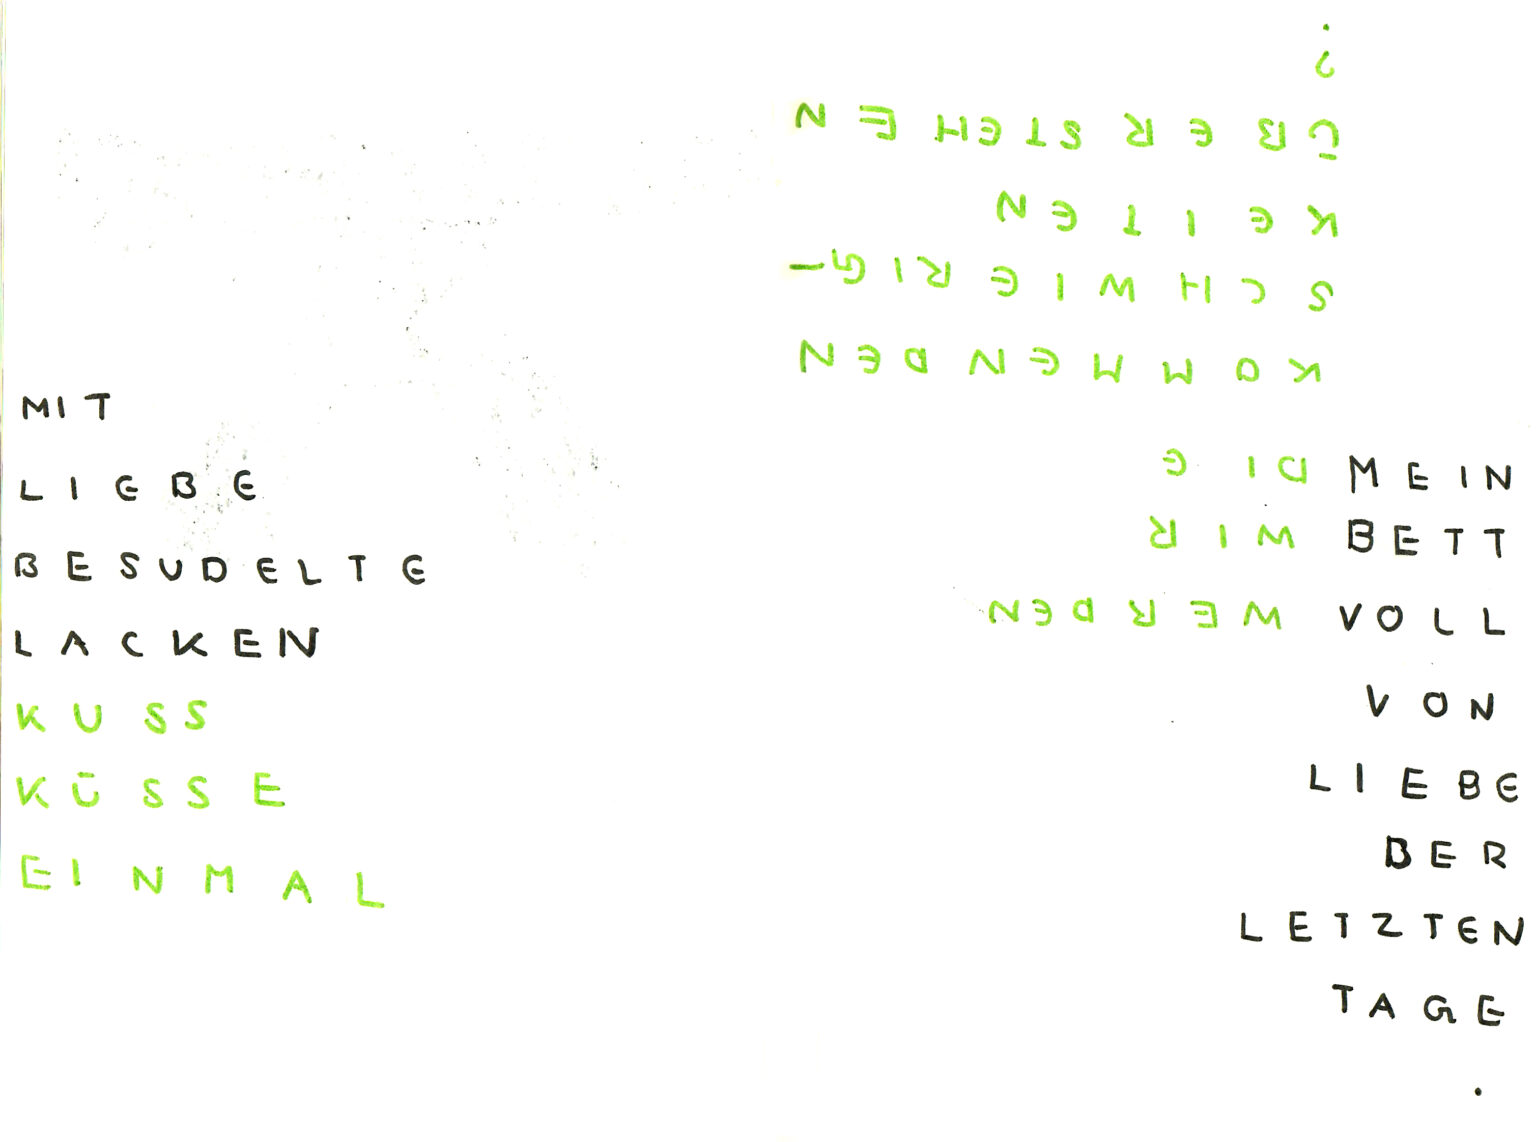 MIT
LIEBE
BESUDELTE
LACKEN
KUSS
KÜSSE
EINMAL
MEIN
BETT
VOLL
VON
LIEBE
BER
LETZTEN
TAGE
.
WERDEN
WIR
DIE
KOMMENDEN
SCHWIERIG-
KEITEN
ÜBERSTEHEN
?